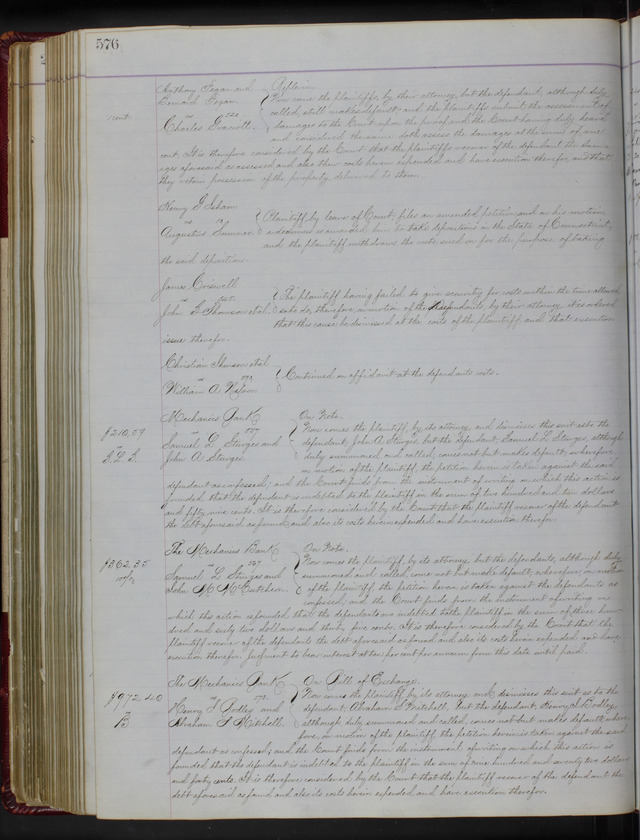 576
Anthony Fagan and On Replevin
Edward Fagan Now come the plaintiffs, by their attorney, but the defendant, although duly
cont. vs called, still makes default; and the plaintiffs submit the assessment of
Charles damages to the Court upon the proof and the Court having duly heard
and considered the same doth assess the damages at the sum of one
cent. It is therefore considered by the Court that the plaintiffs recover of the defendant the dam-
ages aforesaid as assessed and also their costs herein expended and have execution therefor, and that
they retain possession of the property delivered to them.
Henry G Isham
vs Plaintiff by leave of Court, files an amended petition and on his motion,
Augustus Sumner a dedimus is awarded him to take depositions in the State of Connecticut,
and the plaintiff withdraws the note sued on for the purpose of taking
the said depositions.
James Criswell
vs The plaintiff having failed to give security for costs within the time allowed
John G Thomson et al. so to do, therefore, on motion of the defendants, by their attorney, it is ordered
that this cause be dismissed at the costs of the plaintiff, and that execution
issue therefor.
Christian et al
vs Continued on affidavit at the defendants costs.
William A Nelson
Mechanics Bank On Note.
$210,59 vs Now comes the plaintiff, by its attorney, and dismisses this suit as to the
Samuel L Sturges and defendant, John A Sturges, but the defendant, Samuel L Sturges, although
John A Sturges duly summoned and called, comes not but makes default; wherefore,
on motion of the plaintiff, the petition herein is taken against the said
defendant as confessed; and the Court finds from the instrument of writing on which this action is
founded that the defendant is indebted to the plaintiff in the sum of two hundred and ten dollars
and fifty nine cents. It is therefore considered by the Court that the plaintiff recover of the defendant
the debt aforesaid as found and also its costs herein expended and have execution therefor.
The Mechanics Bank On Note.
$362.35 vs Now comes the plaintiff, by its attorney, but the defendants, although duly
Samuel L Sturges and summoned and called, come not but make default; wherefore, on motion
John M McCutchen. of the plaintiff, the petition herein is taken against the defendants as
confessed; and the Court finds from the instrument of writing on
which this action is founded that the defendants are indebted to the plaintiff in the sum of three hun-
dred and sixty two dollars and thirty five cents. It is therefore considered by the Court that the
plaintiff recover of the defendants the debt aforesaid as found and also its costs herein expended and have
execution therefor. Judgment to bear interest at ten per cent per annum from this date until paid.
The Mechanics Bank On Bill of Exchange.
$972.40 vs Now comes the plaintiff, by its attorney and dismisses this suit as to the
Henry S Bodley and defendant, Abraham S Mitchell, but the defendant, Henry S Bodley,
Abraham S Mitchell although duly summoned and called, comes not but makes default; where-
fore, on motion of the plaintiff, the petition herein is taken against the said
defendant as confessed; and the Court finds from the instrument of writing on which this action is
founded that the defendant is indebted to the plaintiff in the sum of nine hundred and seventy two dollars
and forty cents. It is therefore considered by the Court that the plaintiff recover of the defendant the
debt aforesaid as found and also its costs herein expended and have execution therefor.